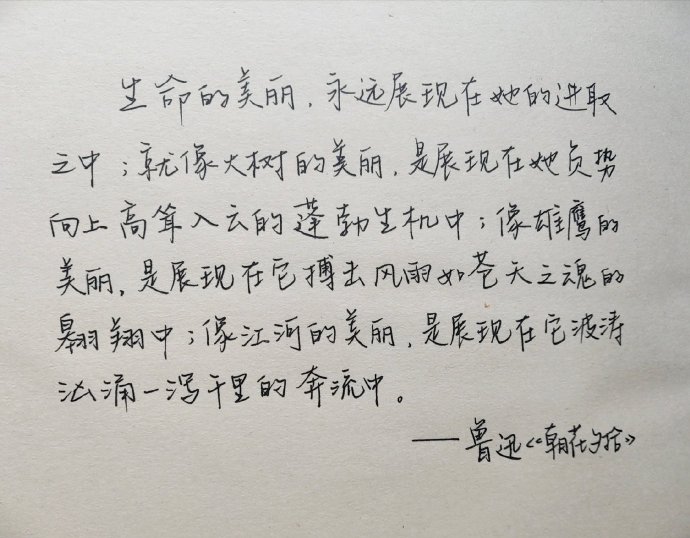 生命的美丽，永远展现在她的进取
之中；就像大树的美丽，是展现在她负势
向上高耸入云的蓬勃生机中；像雄鹰的
美丽，是展现在它搏击风雨如苍天之魂的
翱翔中；像江河的美丽，是展现在它波涛
汹涌一泻千里的奔流中。
——鲁迅《朝花夕拾》